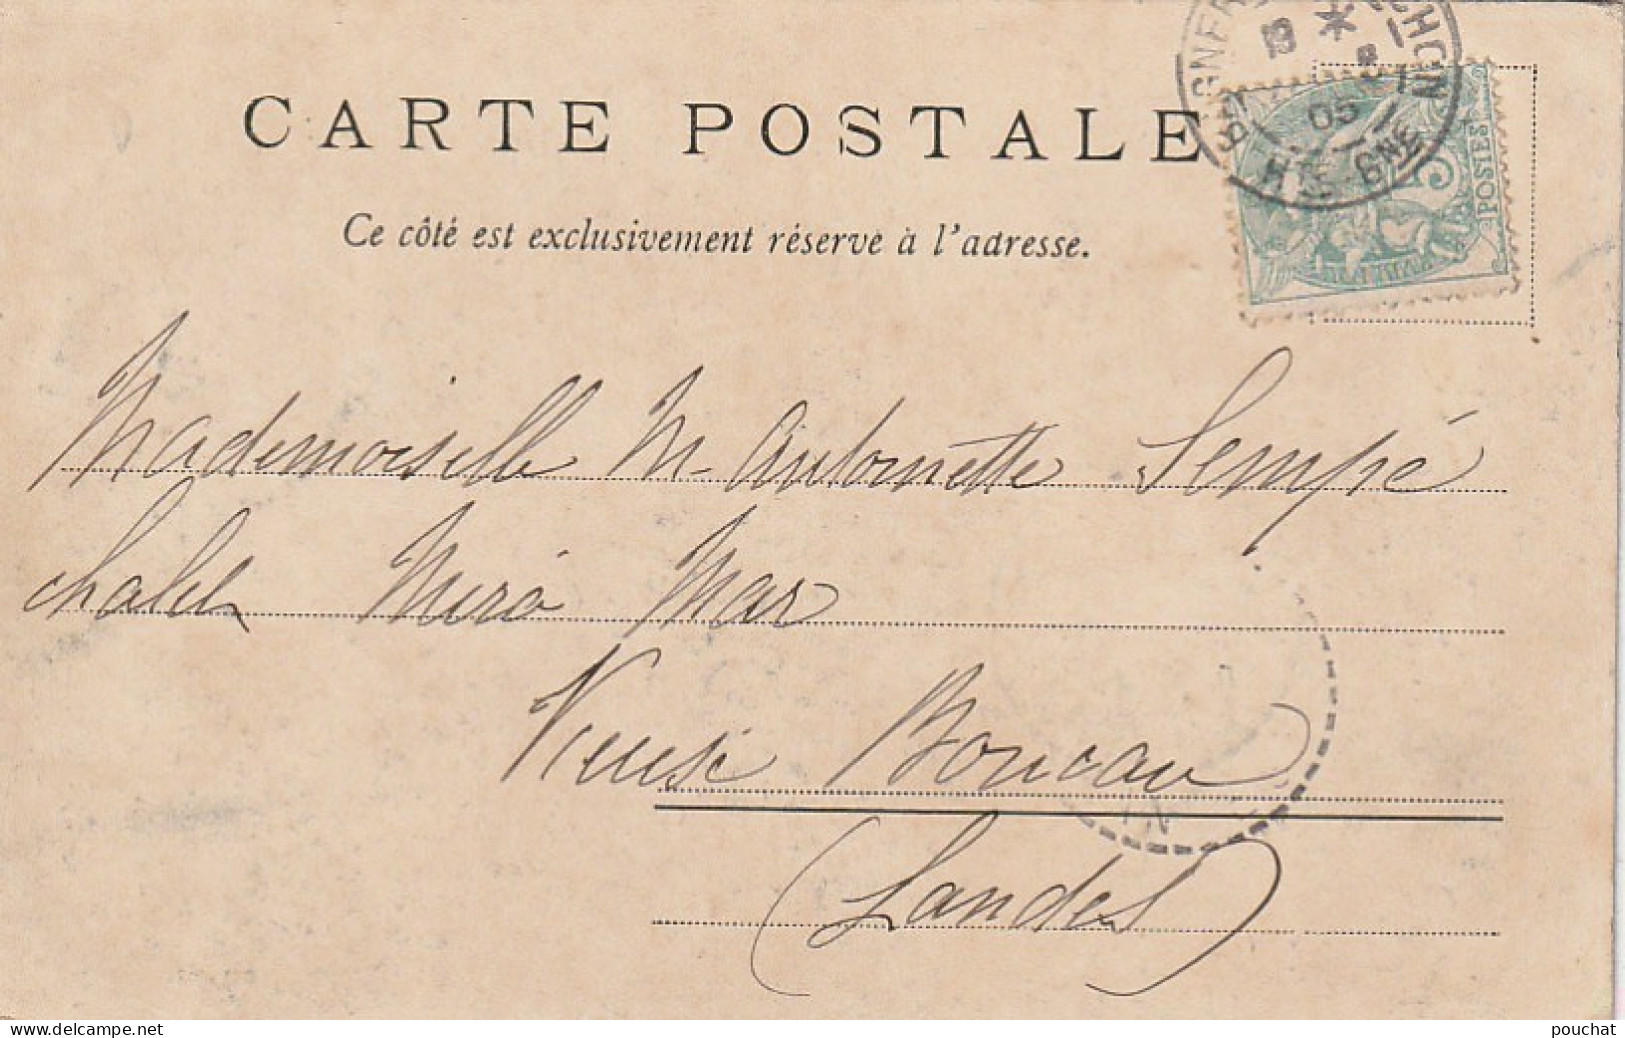 CARTE POSTALE
Ce côté est exclusivement réservé à l'adresse.
19 *
05
5
POSTES
Mademoiselle M-Antoinette Sempé
chalet Mira Mar
Vieux Boucau
(Landes)
www.delcampe.net
pouchat